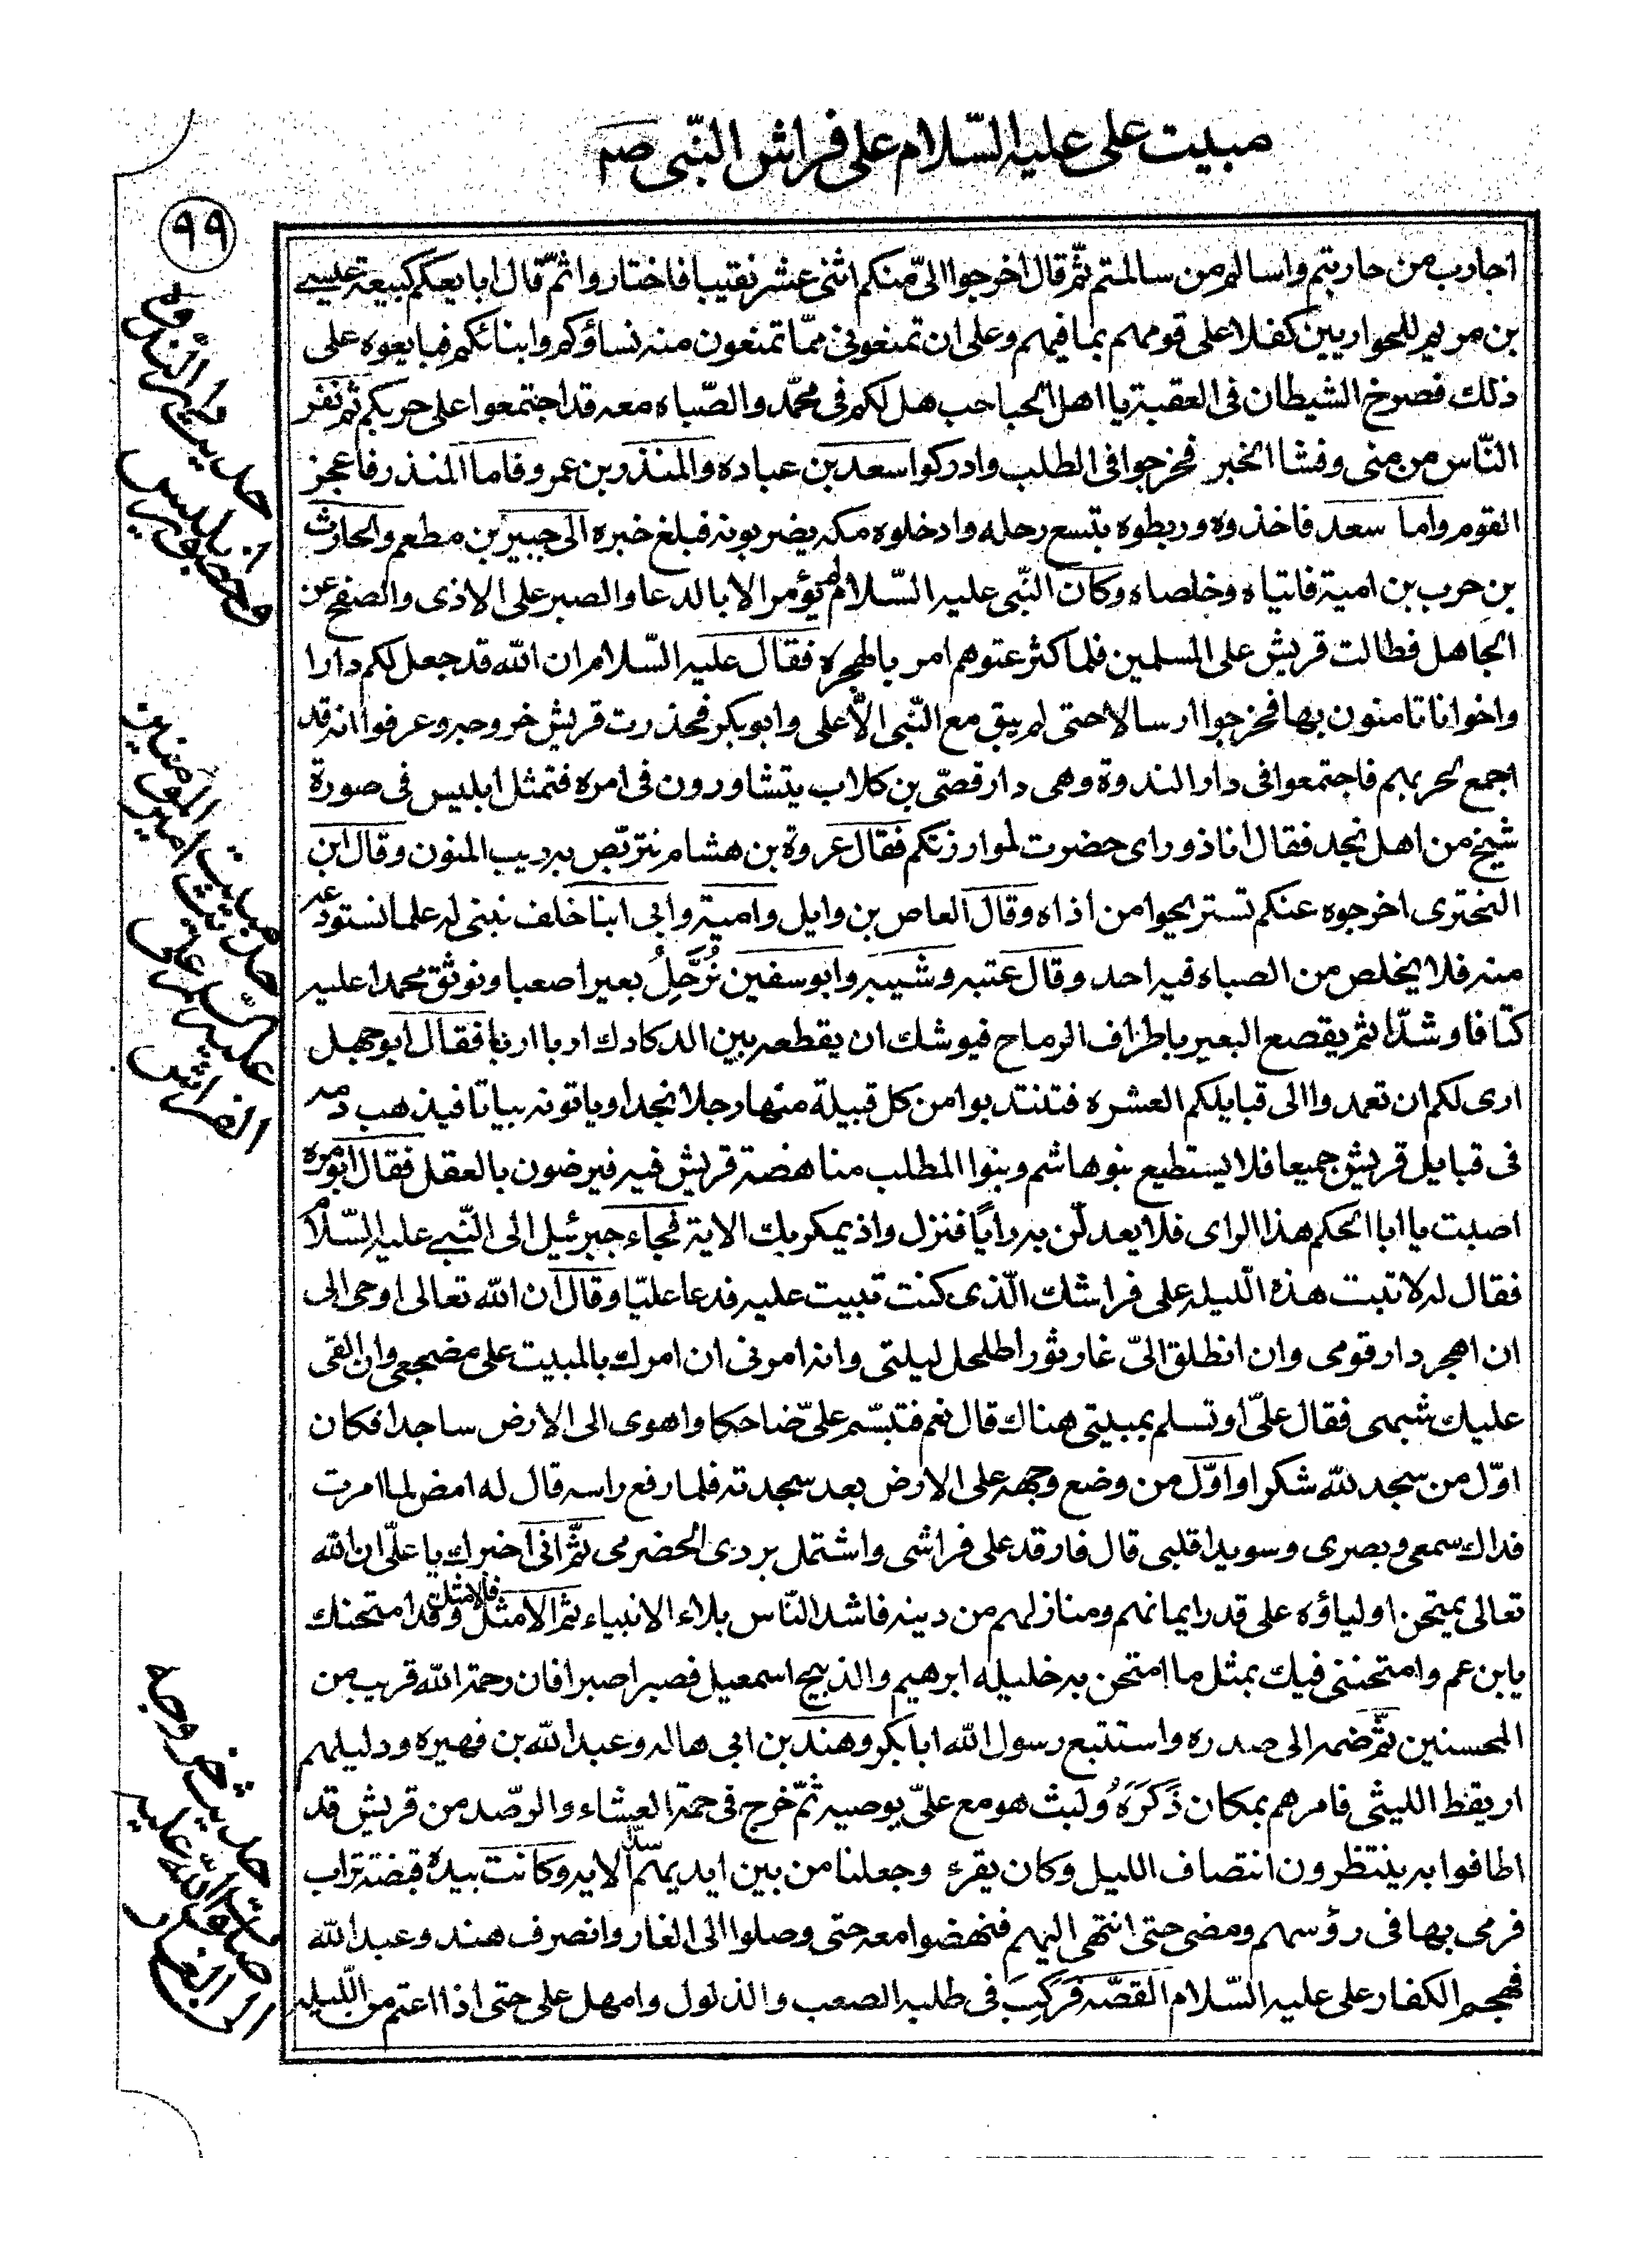 مبيت على عليه السّلام على فراش النّبى ص
٩٩
احارب من حاربتم واسالم من سالمتم ثمّ قال اخرجوا الىّ منكم اثنى عشر نقيبا فاختاروا ثمّ قال ابايعكم كبيعة عيسى
بن مريم للحواريين كفلا على قومهم بما فيهم وعلى ان تمنعونى ممّا تمنعون منه نساؤكم وابنائكم فبايعوه على
ذلك فصرخ الشيطان فى العقبة يا اهل الجباجب هل لكم فى محمّد والصّباه معه قد اجتمعوا على حربكم ثم نفر
النّاس من منى وفشا الخبر فخرجوا فى الطلب وادركوا سعد بن عباده والمنذر بن عمرو فاما المنذر فاعجز
القوم واما سعد فاخذوه وربطوه بتسع رحله وادخلوه مكه يضربونه فبلغ خبره الى جبير بن مطعم والحارث
بن حرب بن امية فاتياه وخلصاه وكان النّبى عليه السّلام لم يؤمر الا بالدعا والصبر على الاذى والصفح عن
الجاهل فطالت قريش على المسلمين فلما كثر عتوهم امر بالهجره فقال عليه السّلام ان الله قد جعل لكم دارا
واخوانا تامنون بها فخرجوا ارسالا حتى لم يبق مع النّبى الّا على وابو بكر فحذرت قريش خروجه وعرفوا انه قد
اجمع لحربهم فاجتمعوا فى دار الندوة وهى دار قصّى بن كلاب يتشاورون فى امره فتمثل ابليس فى صورة
شيخ من اهل نجد فقال انا ذو راى حضرت لموارزتكم فقال عروة بن هشام نتربّص به ريب المنون وقال ابن
البخترى اخرجوه عنكم تستريحوا من اذاه وقال العاص بن وايل وامية وابى ابنا خلف نبنى له علما نستودعه
منه فلا يخلص من الصباه فيه احد وقال عتبه وشيبه وابو سفين نُرَحِّلُ بعيرا صعبا ونوثق محمدا عليه
كتّافا وشدّا ثم يقصع البعير باطراف الرماح فيوشك ان يقطعه بين الدكادك اربا اربا فقال ابو جهل
ارى لكم ان تعمدوا الى قبايلكم العشره فتنتدبوا من كل قبيلة منها رجلا نجدا وياتونه بياتا فيذهب دمه
فى قبايل قريش جميعا فلا يستطيع بنو هاشم وبنوا المطلب مناهضة قريش فيه فيرضون بالعقل فقال ابو مره
اصبت يا ابا الحكم هذا الراى فلا يعدلّن به رايًا فنزل واذ يمكر بك الاية فجاء جبرئيل الى النّبى عليه السّلام
فقال له لا تبت هذه اللّيله على فراشك الّذى كنت تبيت عليه فدعا عليّا وقال ان الله تعالى اوحى الى
ان اهجر دار قومى وان انطلق الىّ غار ثور اطلحل ليلتى وانه امرنى ان امرك بالمبيت على مضجعى وان القى
عليك شبهى فقال علىّ او تسلم بمبيتى هناك قال نعم فتبسّم علىّ ضاحكا واهوى الى الارض ساجدا فكان
اوّل من سجد لله شكرا واوّل من وضع وجهه على الارض بعد سجدته فلما رفع راسه قال له امض لما امرت
فداك سمعى وبصرى وسويدا قلبى قال فارقد على فراشى واشتمل بردى الحضرمى ثمّ انى اخبرك يا علّى ان الله
تعالى يمتحن اولياؤه على قدر ايمانهم ومنازلهم من دينه فاشد النّاس بلاء الانبياء ثم الامثل فالامثل وقد امتحنك
يابن عم وامتحننى فيك بمثل ما امتحن به خليله ابرهيم والذبيح اسمعيل فصبرا صبرا فان رحمة الله قريب من
المحسنين ثمّ ضمه الى صدره واستتبع رسول الله ابا بكر وهند بن ابى هاله وعبد الله بن فهيره ودليلهم
اريقط الليثى فامرهم بمكان ذَكَرَهُ ولبث هو مع علىّ يوصيه ثمّ خرج فى حمة العشاء والرصد من قريش قد
اطافوا به ينتظرون انتصاف الليل وكان يقرء وجعلنا من بين ايديهم سدّا الايه وكانت بيده قبضة تراب
فرمى بها فى رؤسهم ومضى حتى انتهى اليهم فنهضوا معه حتى وصلوا الى الغار وانصرف هند وعبد الله
فهجم الكفار على على عليه السّلام القصّه فَرَكِبَ فى طلبه الصعب والذلول وامهل على حتى اذا اعتم من اللّيله
حديث دار الندوة
وحضور ابليس
حديث مبيت امير المؤمنين
عليه السلام على
الفراش
حديث خروجه
صلوات الله عليه
الى الغار